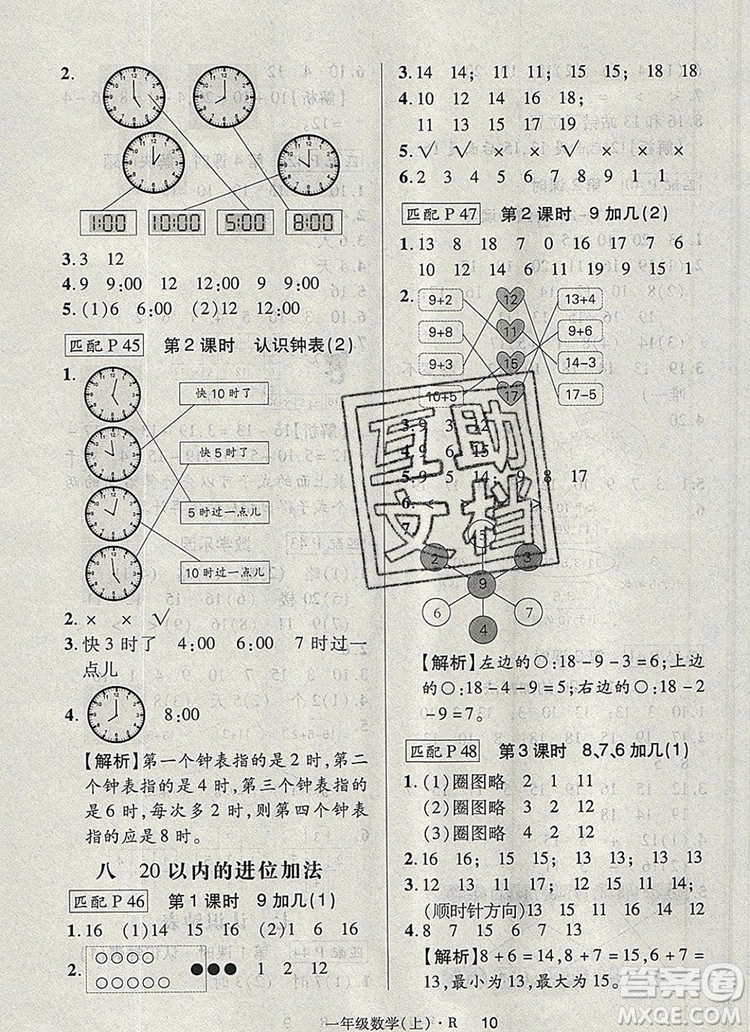 2.
1:00 10:00 5:00 8:00
3.3 12
4.9 9:00 12 12:00 9 9:00
5.(1)6 6:00 (2)12 12:00
匹配 P 45 第 2 课时 认识钟表(2)
1.
快 10 时了
快 5 时了
5 时过一点儿
10 时过一点儿
2. × × × √
3.快 3 时了 4:00 6:00 7 时过一
点儿
4. 8:00
【解析】第一个钟表指的是 2 时,第二
个钟表指的是 4 时,第三个钟表指的
是 6 时,每次多 2 时,所以第四个钟表
指的应是 8 时。
八 20 以内的进位加法
匹配 P 46 第 1 课时 9 加几(1)
1.16 (1)14 15 16 (2)1 6 16
2. 1 2 12
3.14 14;11 11;15 15
4.10 12 14 16 18
11 13 15 17 19
5.√ × √ × √ ×
匹配 P 47 第 2 课时 9 加几(2)
1.13 8 18 7 0 16 17 7 6
13 18 17 10 19 9 15 1
2.
9+2 12 13+4
9+8 11 9+6
9+3 15 14-3
10+5 17 17-5
3.9 3 12
4.9 6 15
5.9 5 14;9 8 17
6.
15
2 3
9
6 7
4
【解析】左边的○:18-9-3=6;上边
的○:18-9-4=5;右边的○:18-2
-9=7。
匹配 P 48 第 3 课时 8、7、6 加几(1)
1.(1)圈图略 2 1 11
(2)圈图略 3 2 12
(3)圈图略 5 1 11
2.16 16;13 13;15 15
3.12 13 14 15 16 17
(顺时针方向)13 11 15 14
【解析】8+6=14,8+7=15,6+7=
13,最小为 13,最大为 15。
互助
文档
答案圈
MXQE.COM
一年级数学(上)·R 10